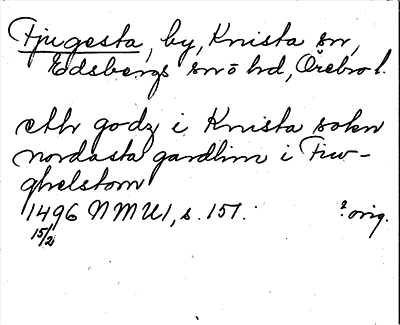 Fjugesta, by, Knista sn,
Edsbergs sn o hd, Örebro l.
etth godz i Knista sokn
nordasta gardhin i Fiw-
ghelstom
1496 NMU1, s. 151. ? orig.
15/2